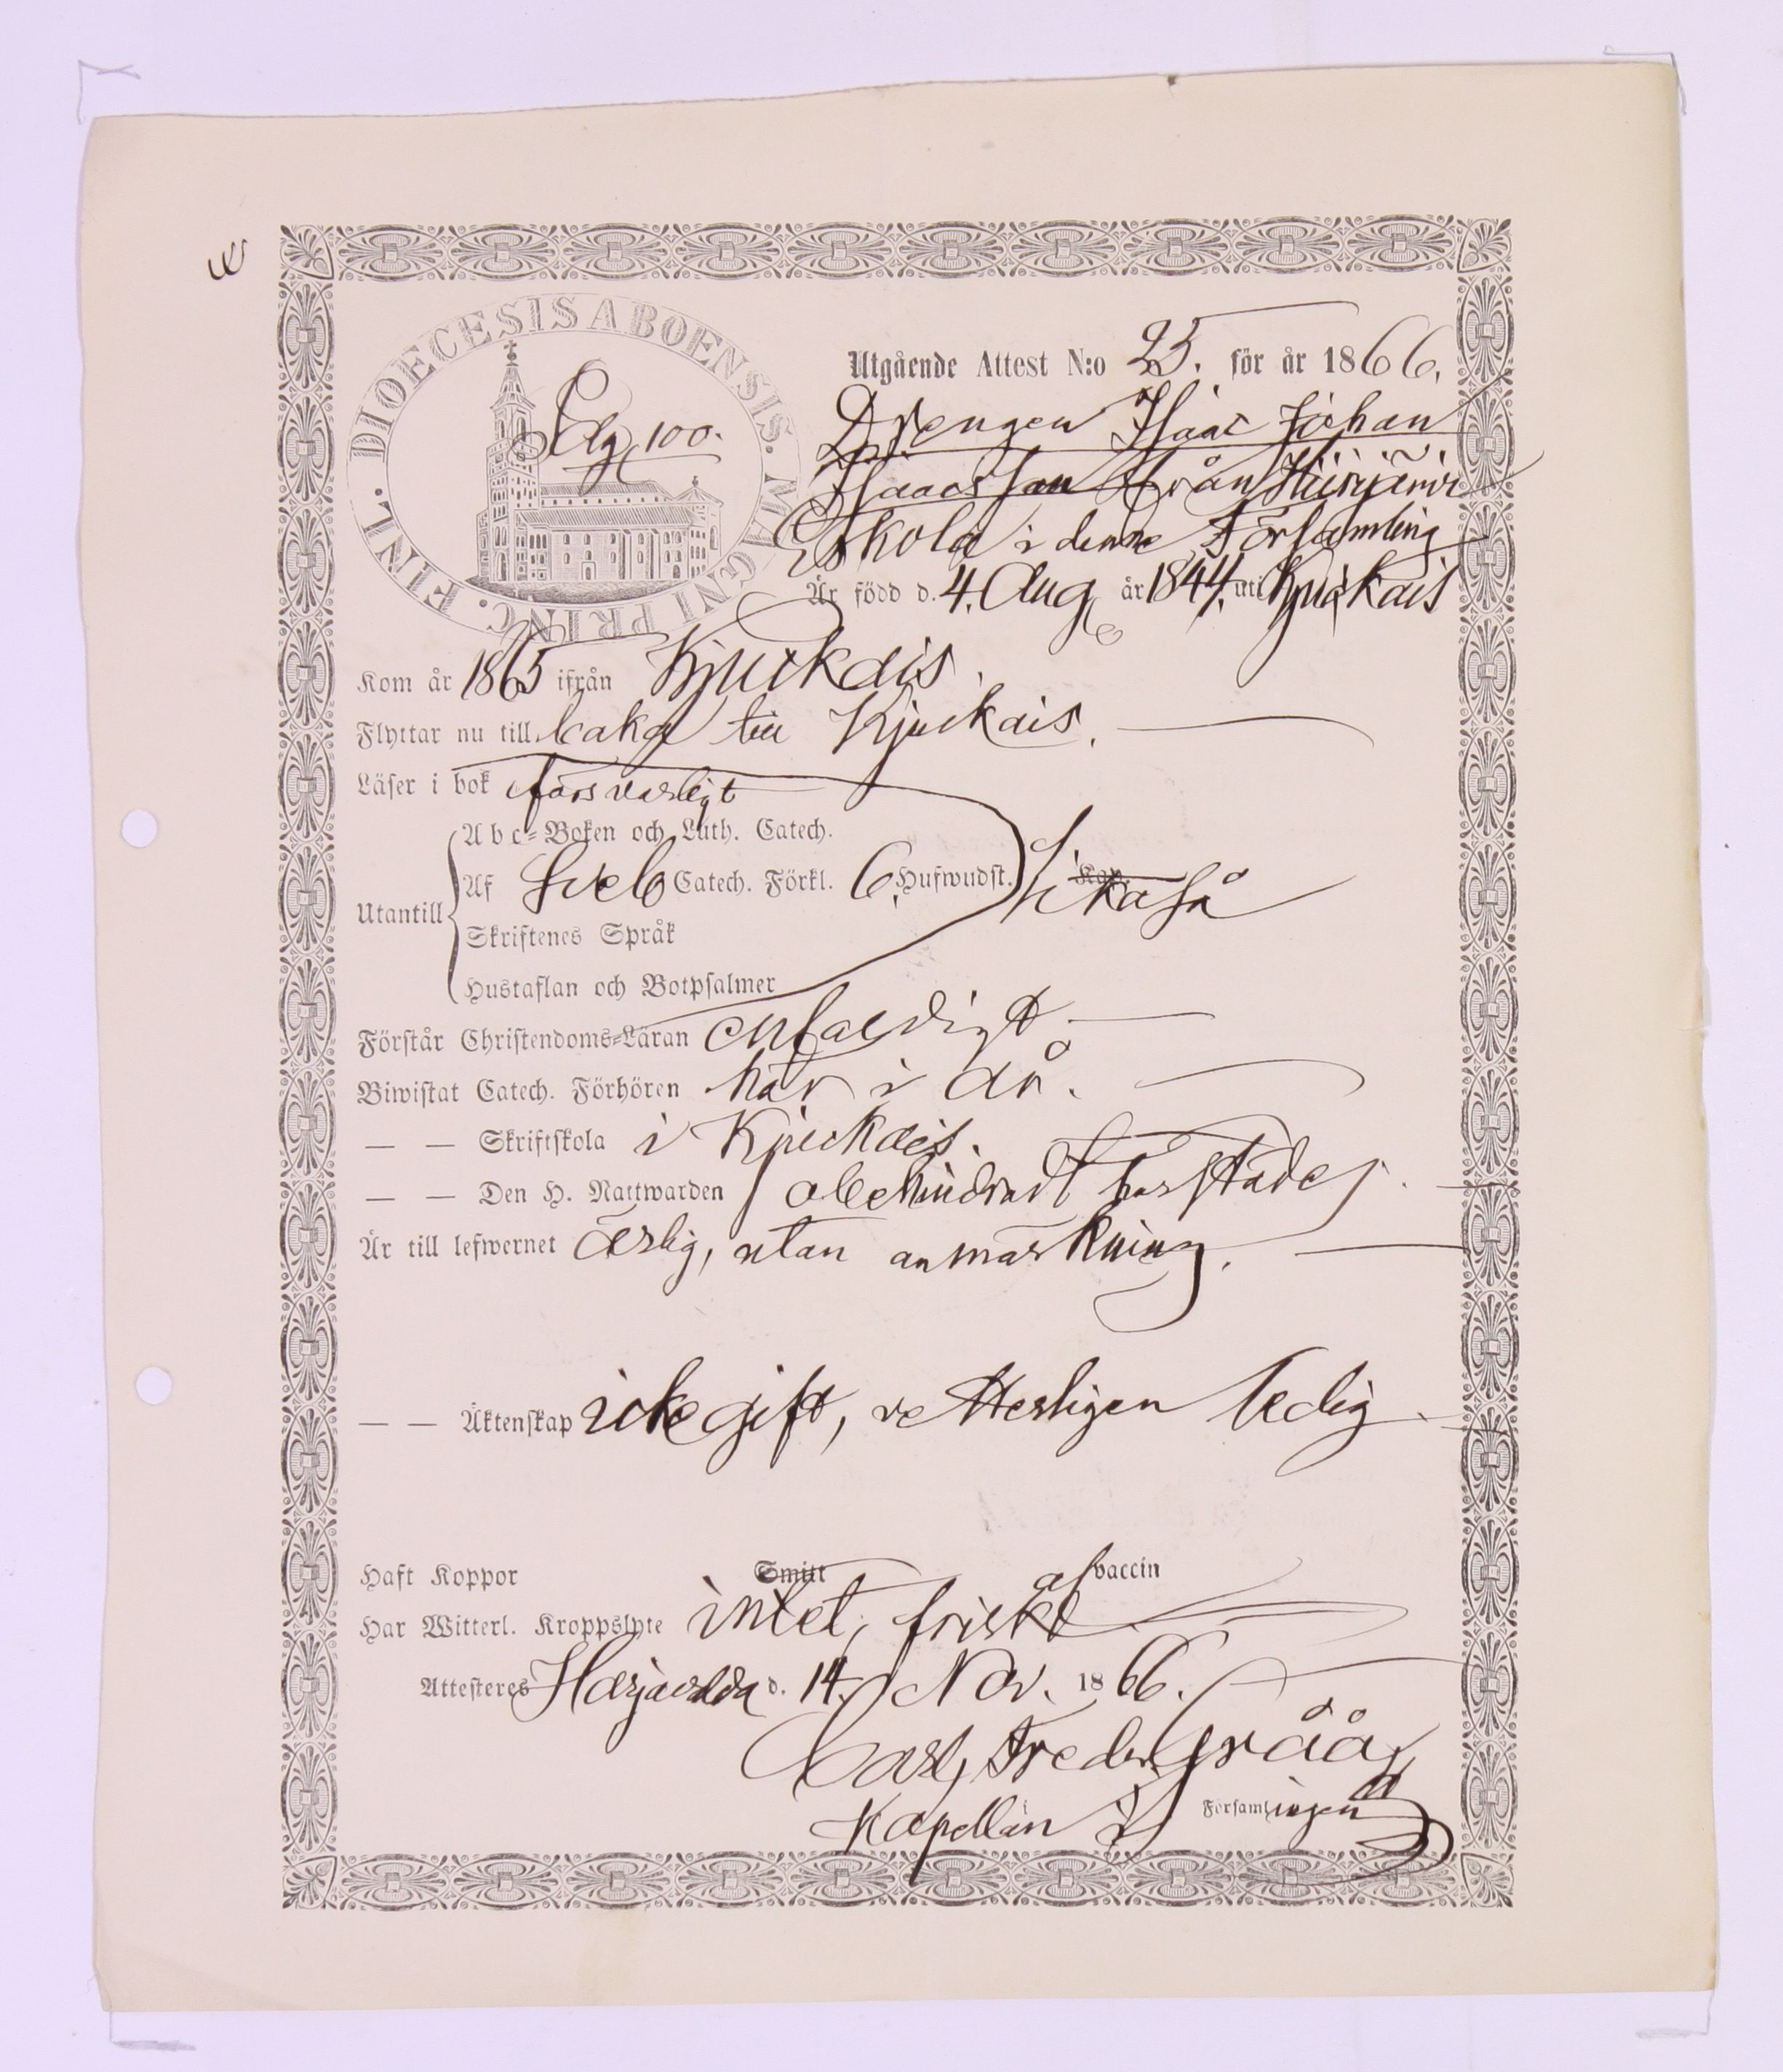 DIOECESIS ABOENSIS. MAGNI PRINC. FINL.
Pag 100.
Utgående Attest N:o 25. för år 1866.
Drengen Isaac Johan
Isaacsson från Hiirijärvi
Eskola i denne Församling
Är född d. 4. Aug år 1844. uti Kjuikais
Kom år 1865 ifrån Kjuikais.
Flyttar nu till baka till Kjuikais.
Läser i bok försvarligt
Abc-Boken och Luth. Catech.
Utantill Af Sveb Catech. Förkl. 6. Hufwudst. Kap. likaså
Skriftenes Språk
Hustaflan och Botpsalmer
Förstår Christendoms-Läran enfaldigt
Biwistat Catech. Förhören här i år.
— — Skriftskola i Kjuikais.
— — Den H. Nattwarden obehindradt härstädes.
Är till lefwernet ärlig, utan anmärkning.
— — Äktenskap icke gift, vetterligen ledig
Haft Koppor Smitt af vaccin
Har Witterl. Kroppslyte intet, frisk
Attesteres Harjavalda d. 14. Nov. 1866.
Carl Fredr Gråå
Kapellan i Församlingen